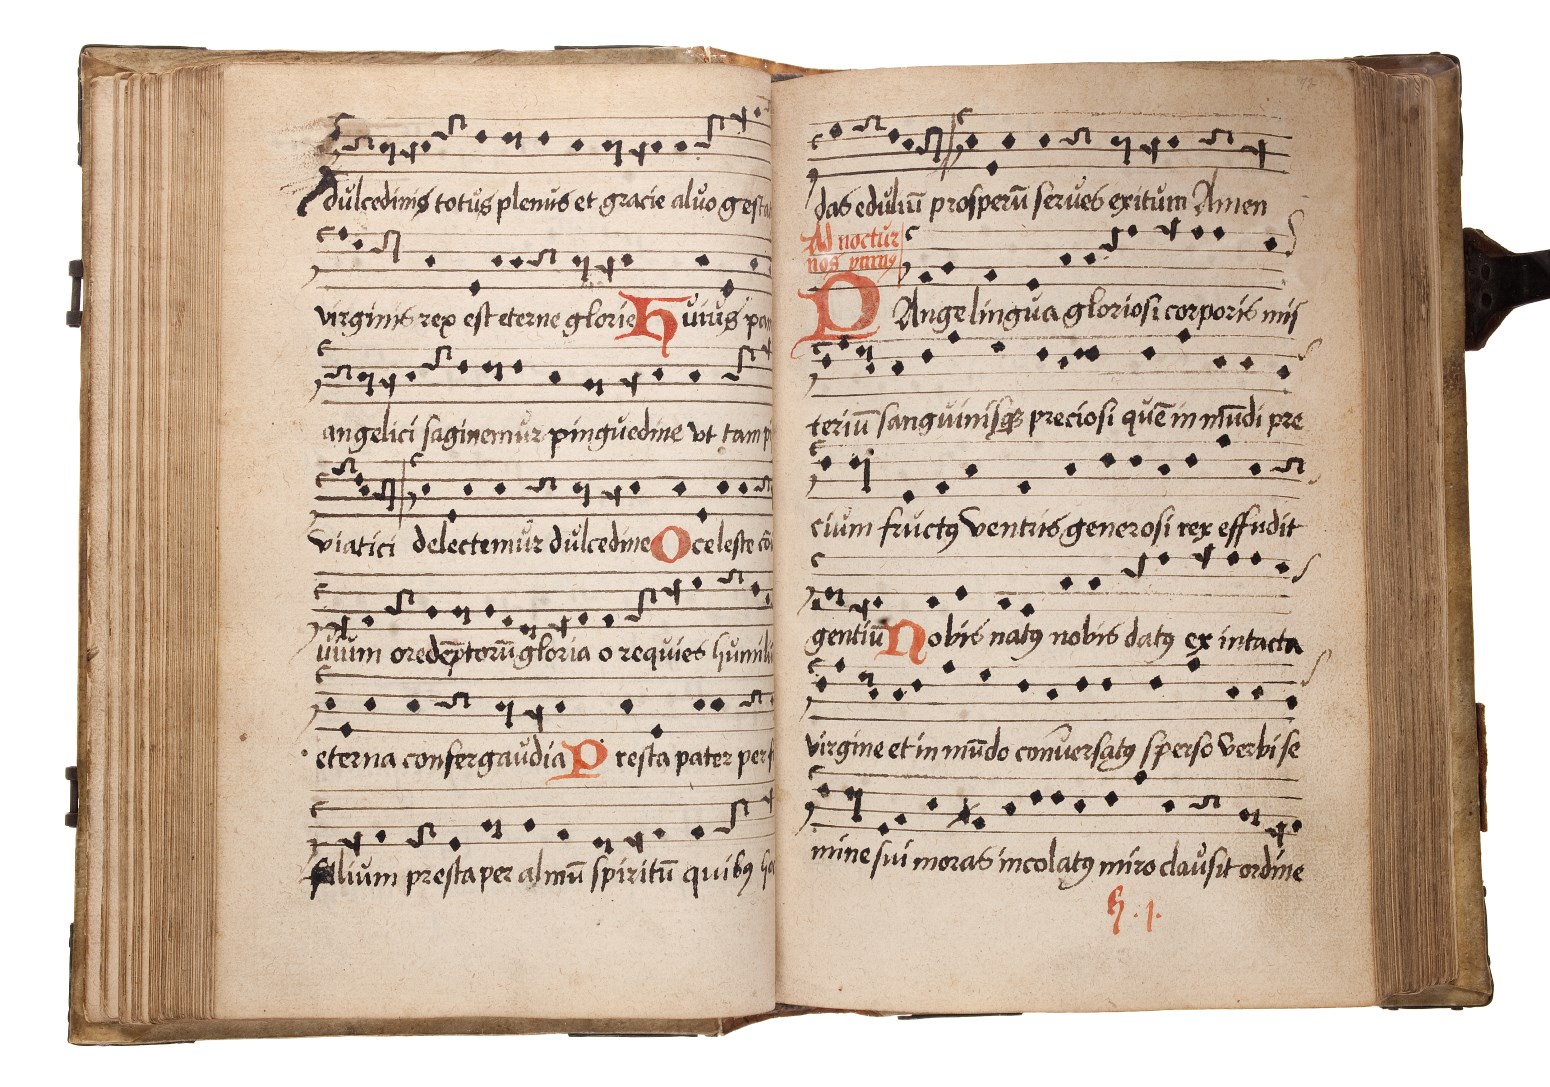 dulcedinis totus plenus et gracie aluo gesta
virginis rex est eterne glorie Huius pa
angelici saginemur pinguedine vt tam p
viatici delectemur dulcedine O celeste cō
uium o redēptorū gloria o requies humili
eterna confer gaudia Presta pater per
filium presta per almū spiritū quibꝰ h
das eduliū prosperū serues exitum Amen
Ad noctur
nos
PAnge lingua gloriosi corporis mis
teriū sanguinisqꝫ preciosi quē in mūdi pre
cium fructꝰ ventris generosi rex effudit
gentiū Nobis natꝰ nobis datꝰ ex intacta
virgine et in mūdo conuersatꝰ sperso verbi se
mine sui moras incolatꝰ miro clausit ordine
h . j .